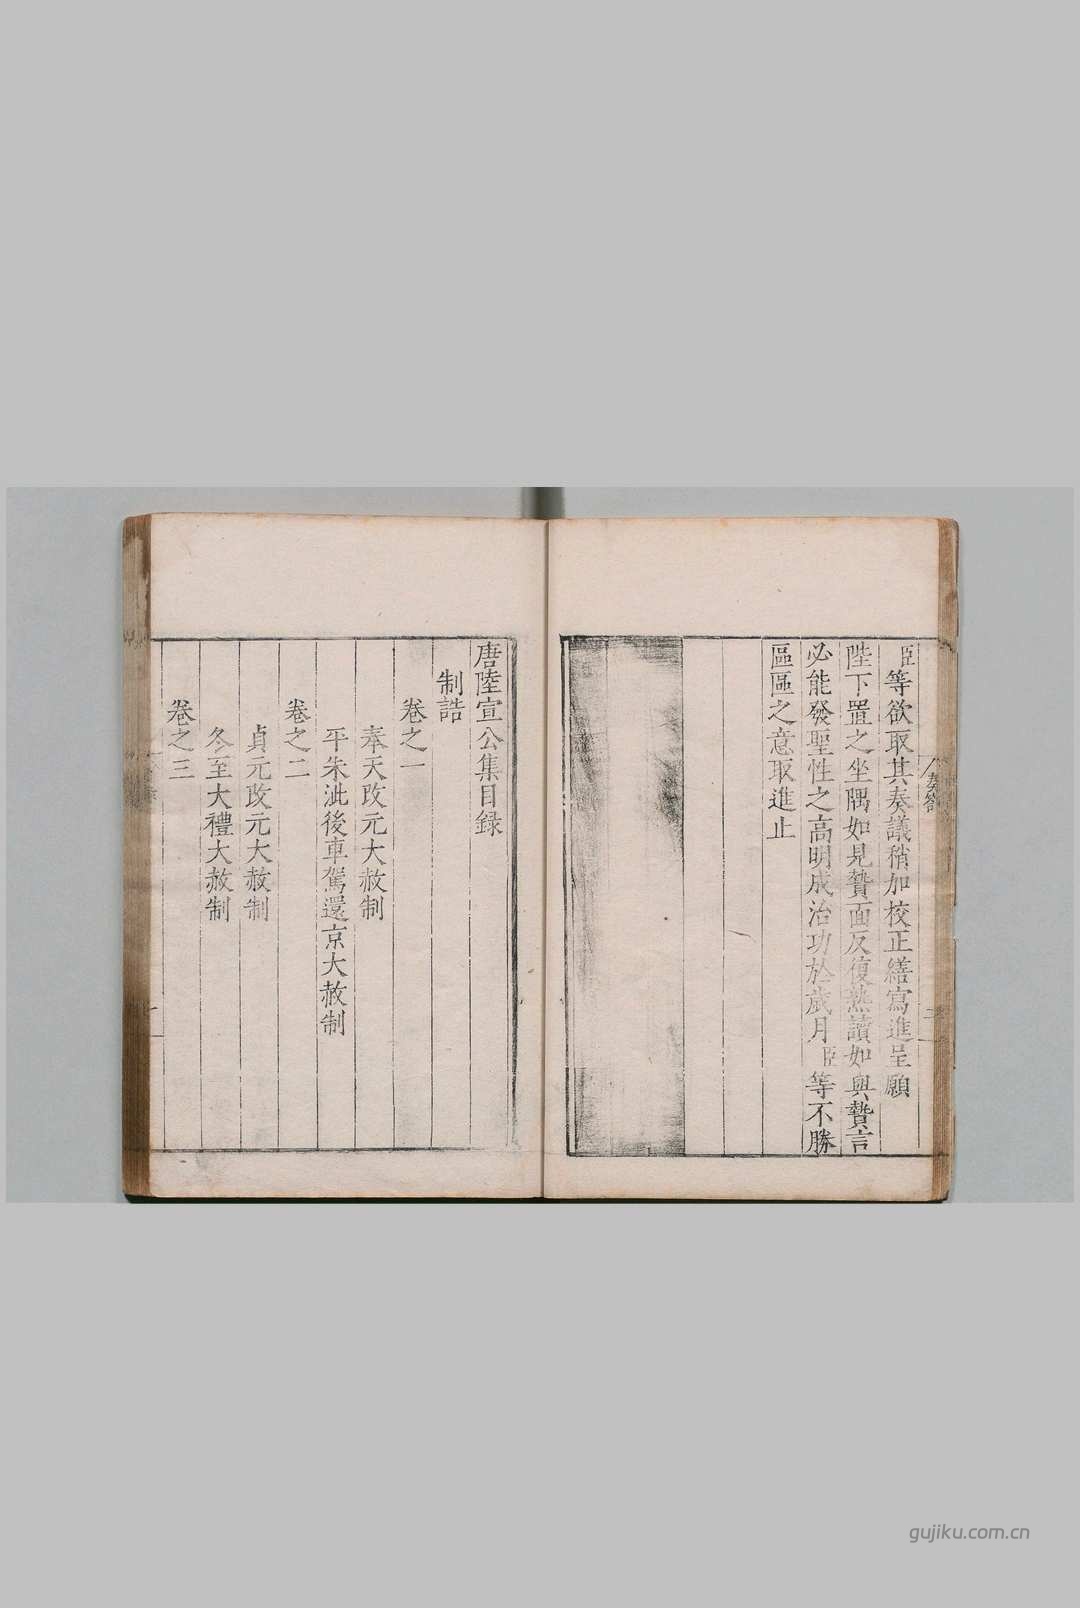 臣等欲取其奏議稍加校正繕寫進呈願
陛下置之坐隅如見贄面反復熟讀如與贄言
必能發聖性之高明成治功於歲月臣等不勝
區區之意取進止
唐陸宣公集目録
制誥
卷之一
奉天改元大赦制
平朱泚後車駕還京大赦制
卷之二
貞元改元大赦制
冬至大禮大赦制
卷之三
gujiku.com.cn